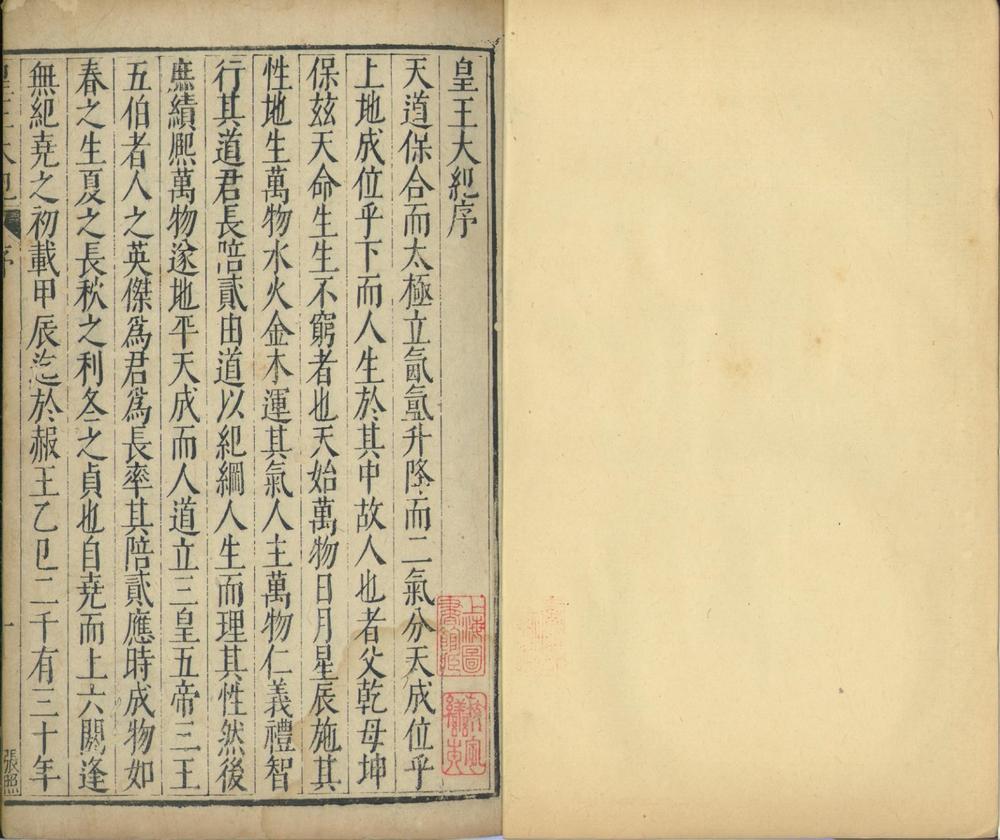 皇王大紀序
天道保合而太極立氤氳升降而二氣分天成位乎
上地成位乎下而人生於其中故人也者父乾母坤
保玆天命生生不窮者也天始萬物日月星辰施其
性地生萬物水火金木運其氣人主萬物仁義禮智
行其道君長陪貳由道以紀綱人生而理其性然後
庶績熈萬物遂地平天成而人道立三皇五帝三王
五伯者人之英傑爲君爲長率其陪貳應時成物如
春之生夏之長秋之利冬之貞也自堯而上六閼逢
無紀堯之初載甲辰迄於赧王乙巳二千有三十年
皇王大紀
序
一
張照
上海圖
書館藏